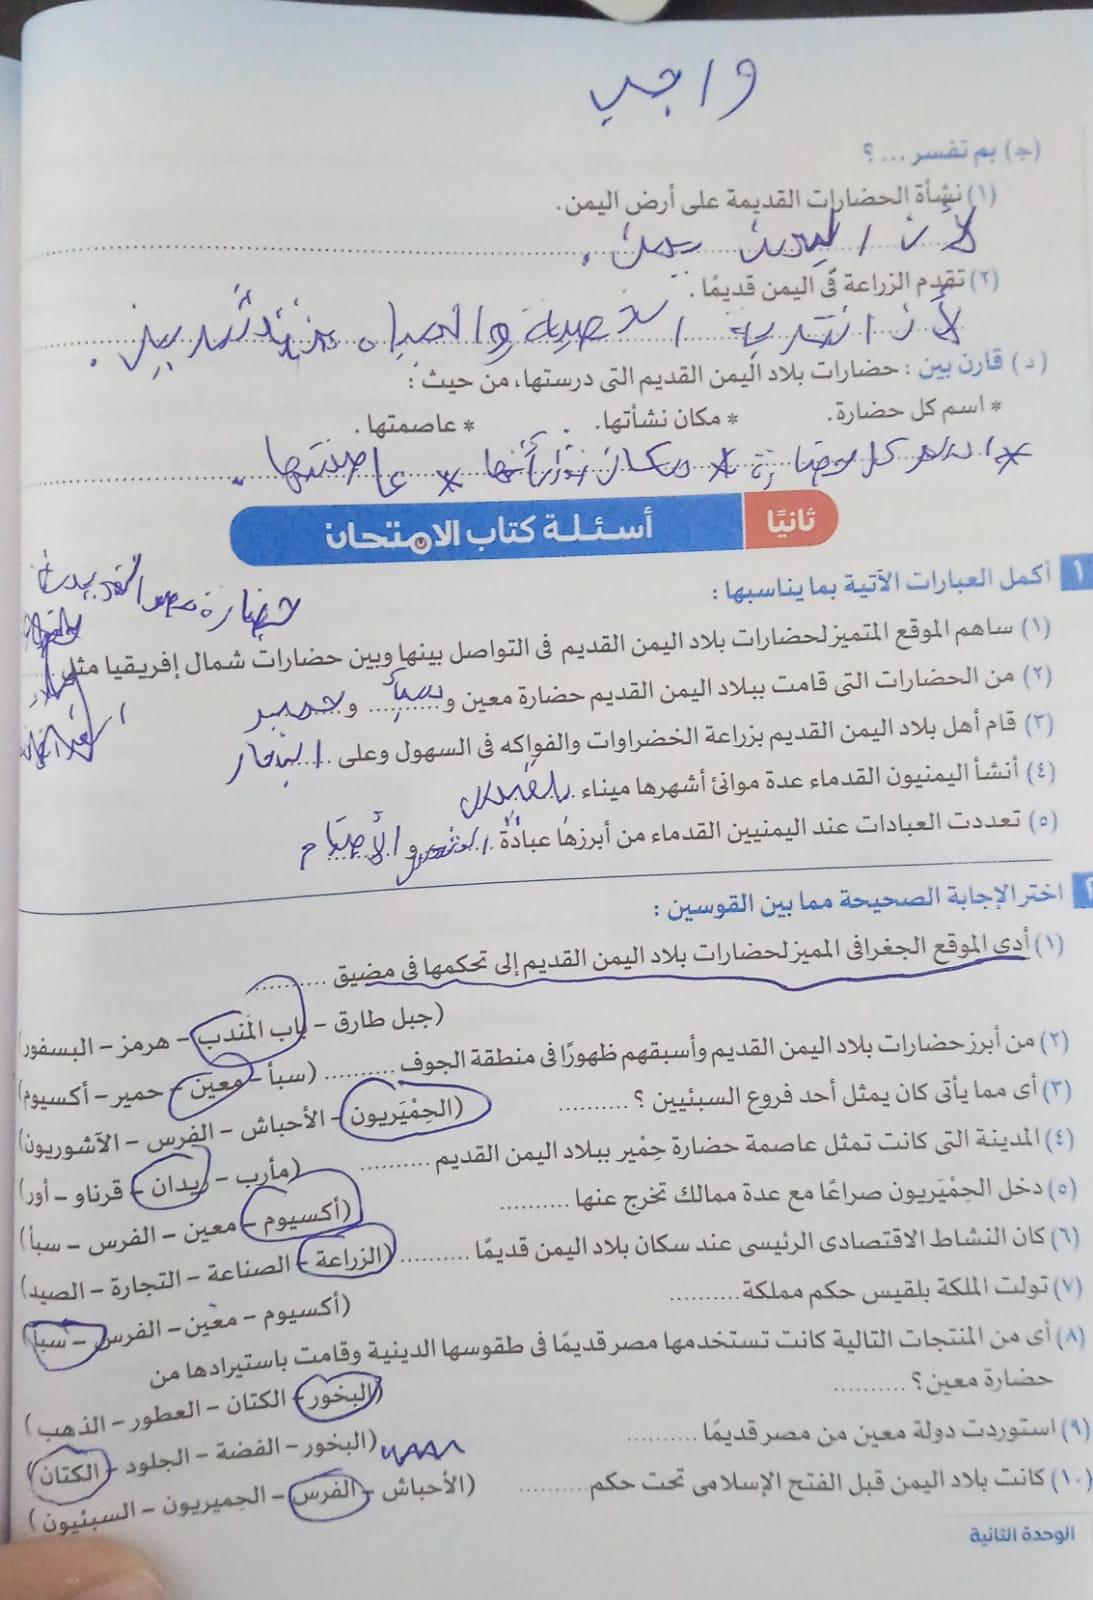 واجب
(ج) بم تفسر ... ؟
(١) نشأة الحضارات القديمة على أرض اليمن.
لأن اليمن
(٢) تقدم الزراعة فى اليمن قديمًا.
لأن التربة الخصبة والمياه
(د) قارن بين : حضارات بلاد اليمن القديم التى درستها، من حيث :
* اسم كل حضارة. * مكان نشأتها. * عاصمتها.
* اسم كل حضارة * مكان نشأتها * عاصمتها.
ثانيًا أسئلة كتاب الامتحان
١ أكمل العبارات الآتية بما يناسبها :
حضارة مصر القديمة
(١) ساهم الموقع المتميز لحضارات بلاد اليمن القديم فى التواصل بينها وبين حضارات شمال إفريقيا مثل
(٢) من الحضارات التى قامت ببلاد اليمن القديم حضارة معين و سبأ و حمير
(٣) قام أهل بلاد اليمن القديم بزراعة الخضراوات والفواكه فى السهول وعلى ......
(٤) أنشأ اليمنيون القدماء عدة موانئ أشهرها ميناء بلقيس
(٥) تعددت العبادات عند اليمنيين القدماء من أبرزها عبادة الشمس و الأصنام
اختر الإجابة الصحيحة مما بين القوسين :
(١) أدى الموقع الجغرافى المميز لحضارات بلاد اليمن القديم إلى تحكمها فى مضيق ..........
(جبل طارق – باب المندب – هرمز – البسفور)
(٢) من أبرز حضارات بلاد اليمن القديم وأسبقهم ظهورًا فى منطقة الجوف .......... (سبأ – معين – حمير – أكسيوم)
(٣) أى مما يأتى كان يمثل أحد فروع السبئيين ؟ ..........
(الحِمْيَريون – الأحباش – الفرس – الآشوريون)
(٤) المدينة التى كانت تمثل عاصمة حضارة حِمْير ببلاد اليمن القديم ..........
(مأرب – ريدان – قرناو – أور)
(٥) دخل الحِمْيَريون صراعًا مع عدة ممالك تخرج عنها ..........
(أكسيوم – معين – الفرس – سبأ)
(٦) كان النشاط الاقتصادى الرئيسى عند سكان بلاد اليمن قديمًا ..........
(الزراعة – الصناعة – التجارة – الصيد)
(٧) تولت الملكة بلقيس حكم مملكة ..........
(أكسيوم – معين – الفرس – سبأ)
(٨) أى من المنتجات التالية كانت تستخدمها مصر قديمًا فى طقوسها الدينية وقامت باستيرادها من
حضارة معين؟ ..........
(البخور – الكتان – العطور – الذهب)
(٩) استوردت دولة معين من مصر قديمًا ..........
(البخور – الفضة – الجلود – الكتان)
(١٠) كانت بلاد اليمن قبل الفتح الإسلامى تحت حكم ..........
(الأحباش – الفرس – الحميريون – السبئيون)
الوحدة الثانية